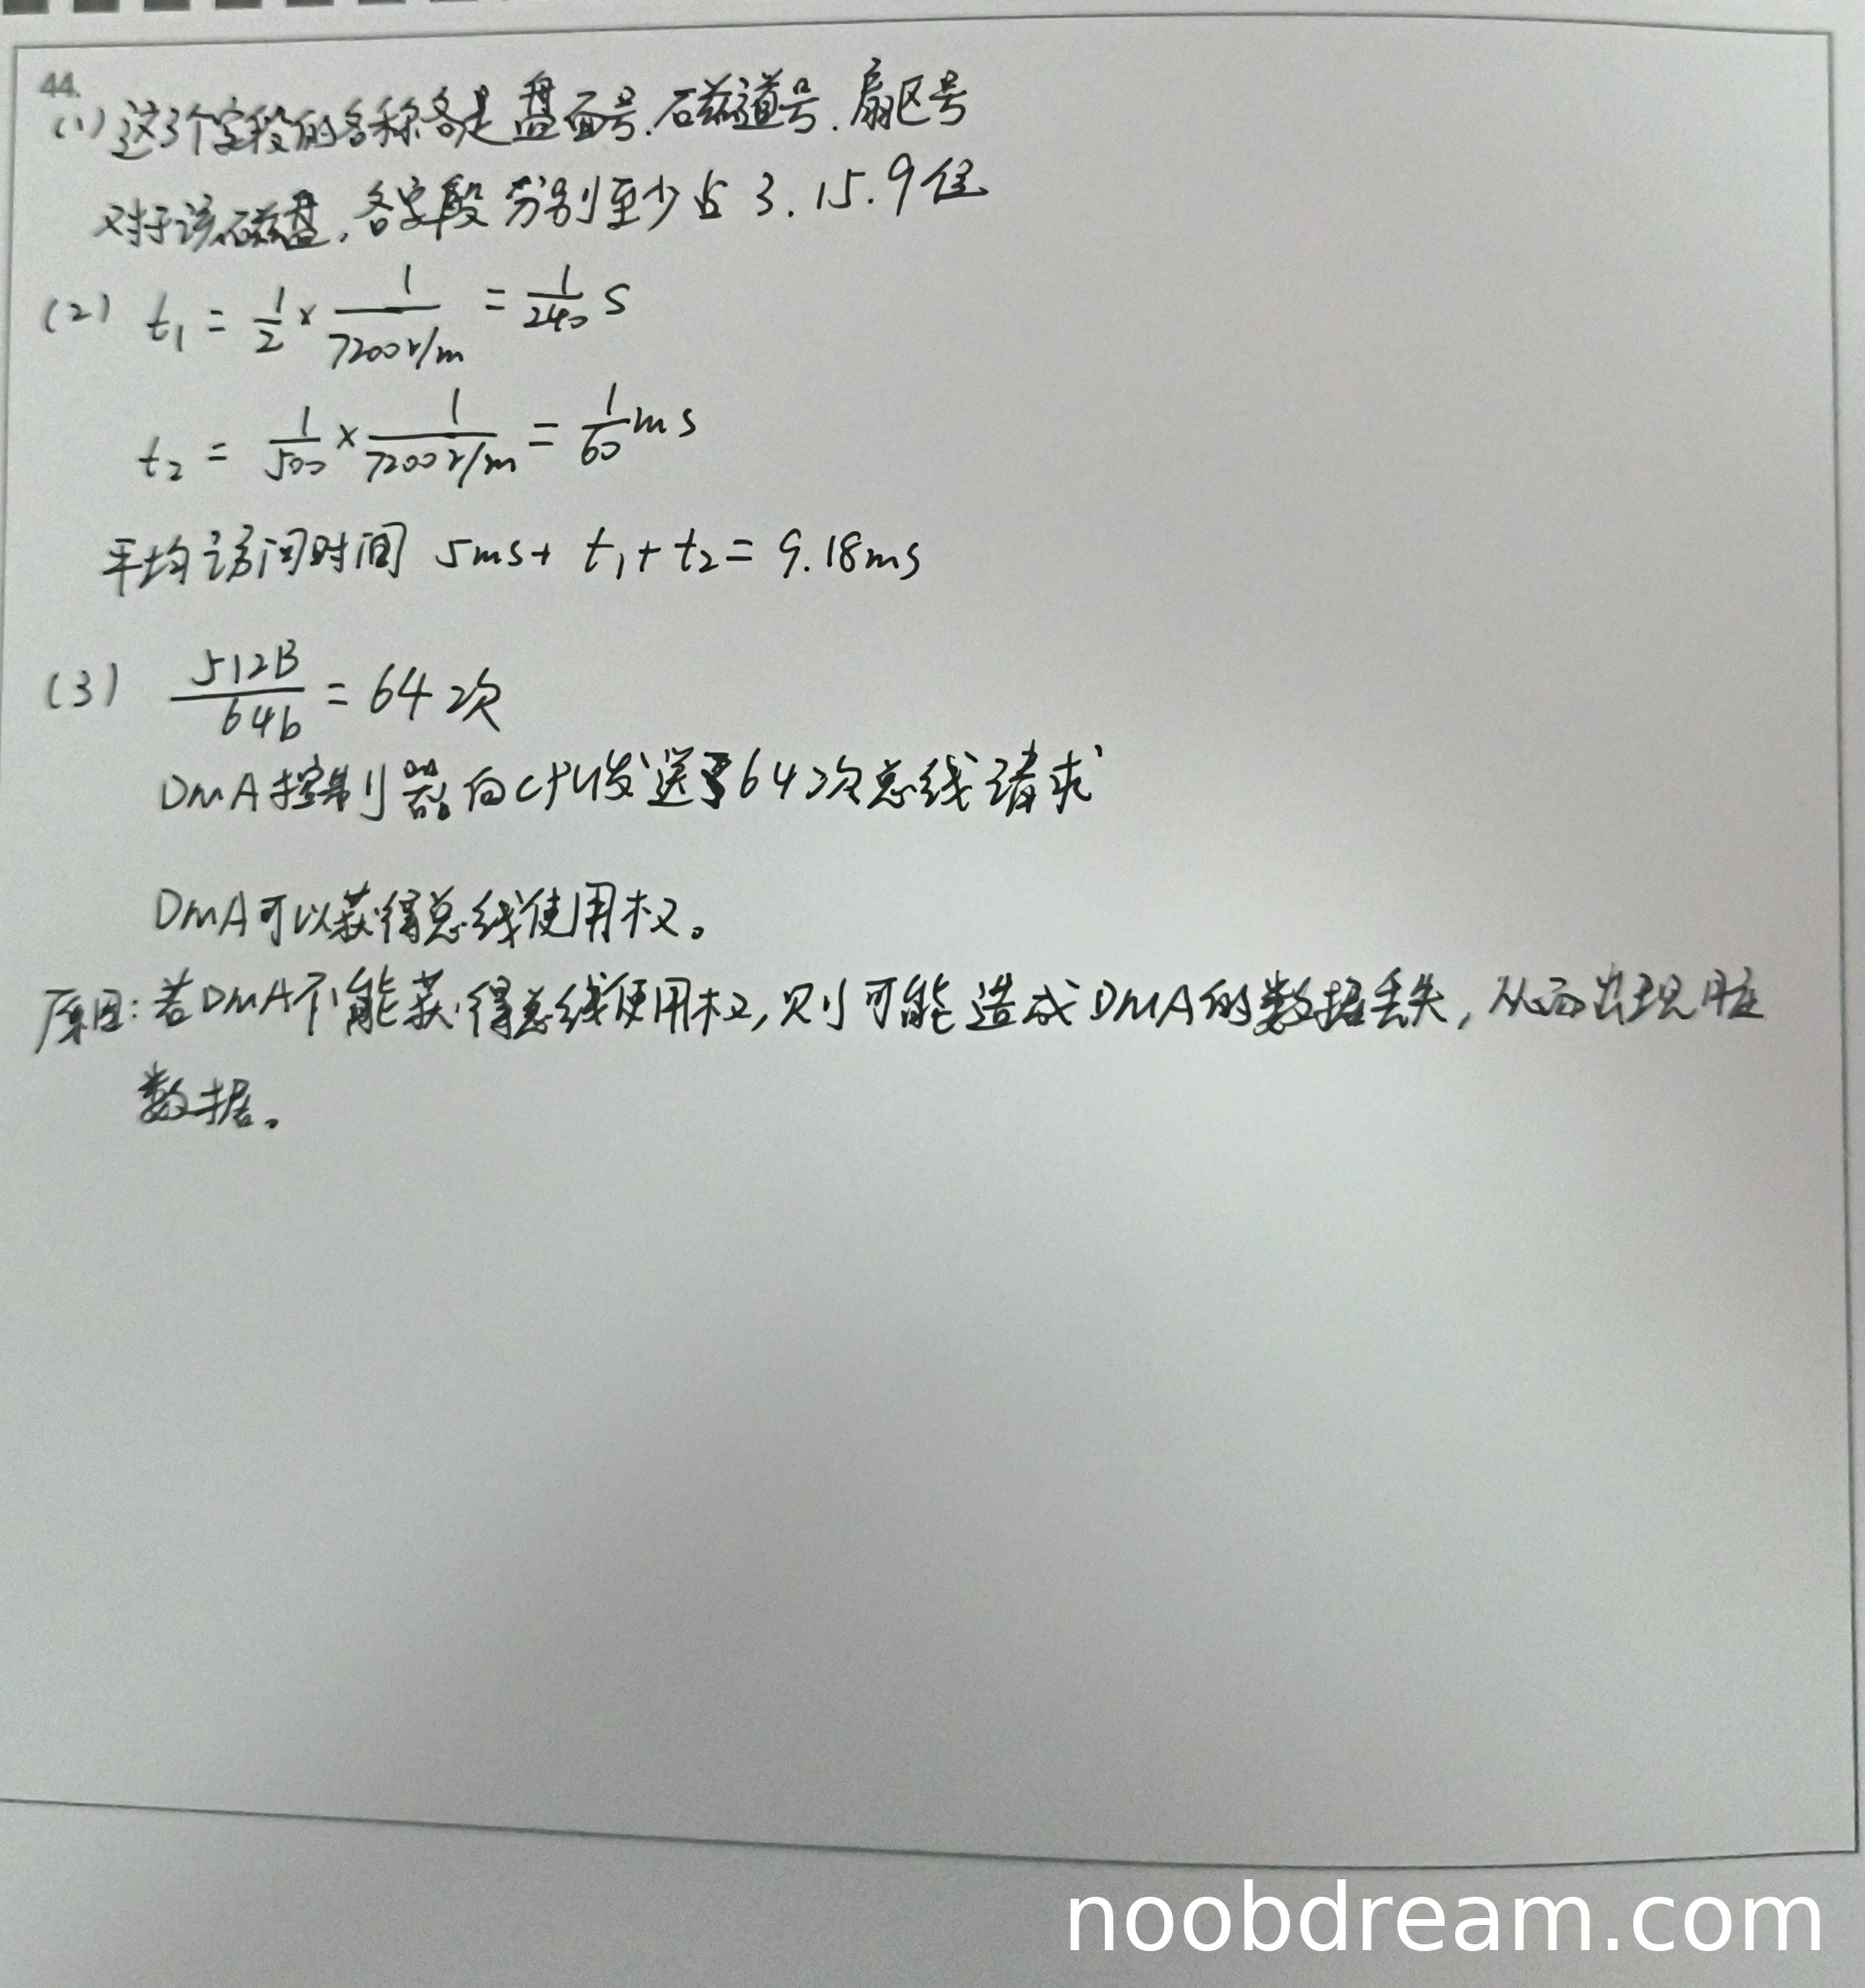 44.
(1) 这3个字段的名称各是 盘面号、磁道号、扇区号
对于该磁盘,各字段分别至少占 3、15、9位
(2) t₁ = 1/2 × 1/7200r/m = 1/240 s
t₂ = 1/500 × 1/7200r/m = 1/60 ms
平均访问时间 5ms + t₁ + t₂ = 9.18ms
(3) 512B/64b = 64次
DMA控制器向CPU发送了64次总线请求
DMA可以获得总线使用权。
原因:若DMA不能获得总线使用权,则可能造成DMA的数据丢失,从而出现脏
数据。
noobdream.com